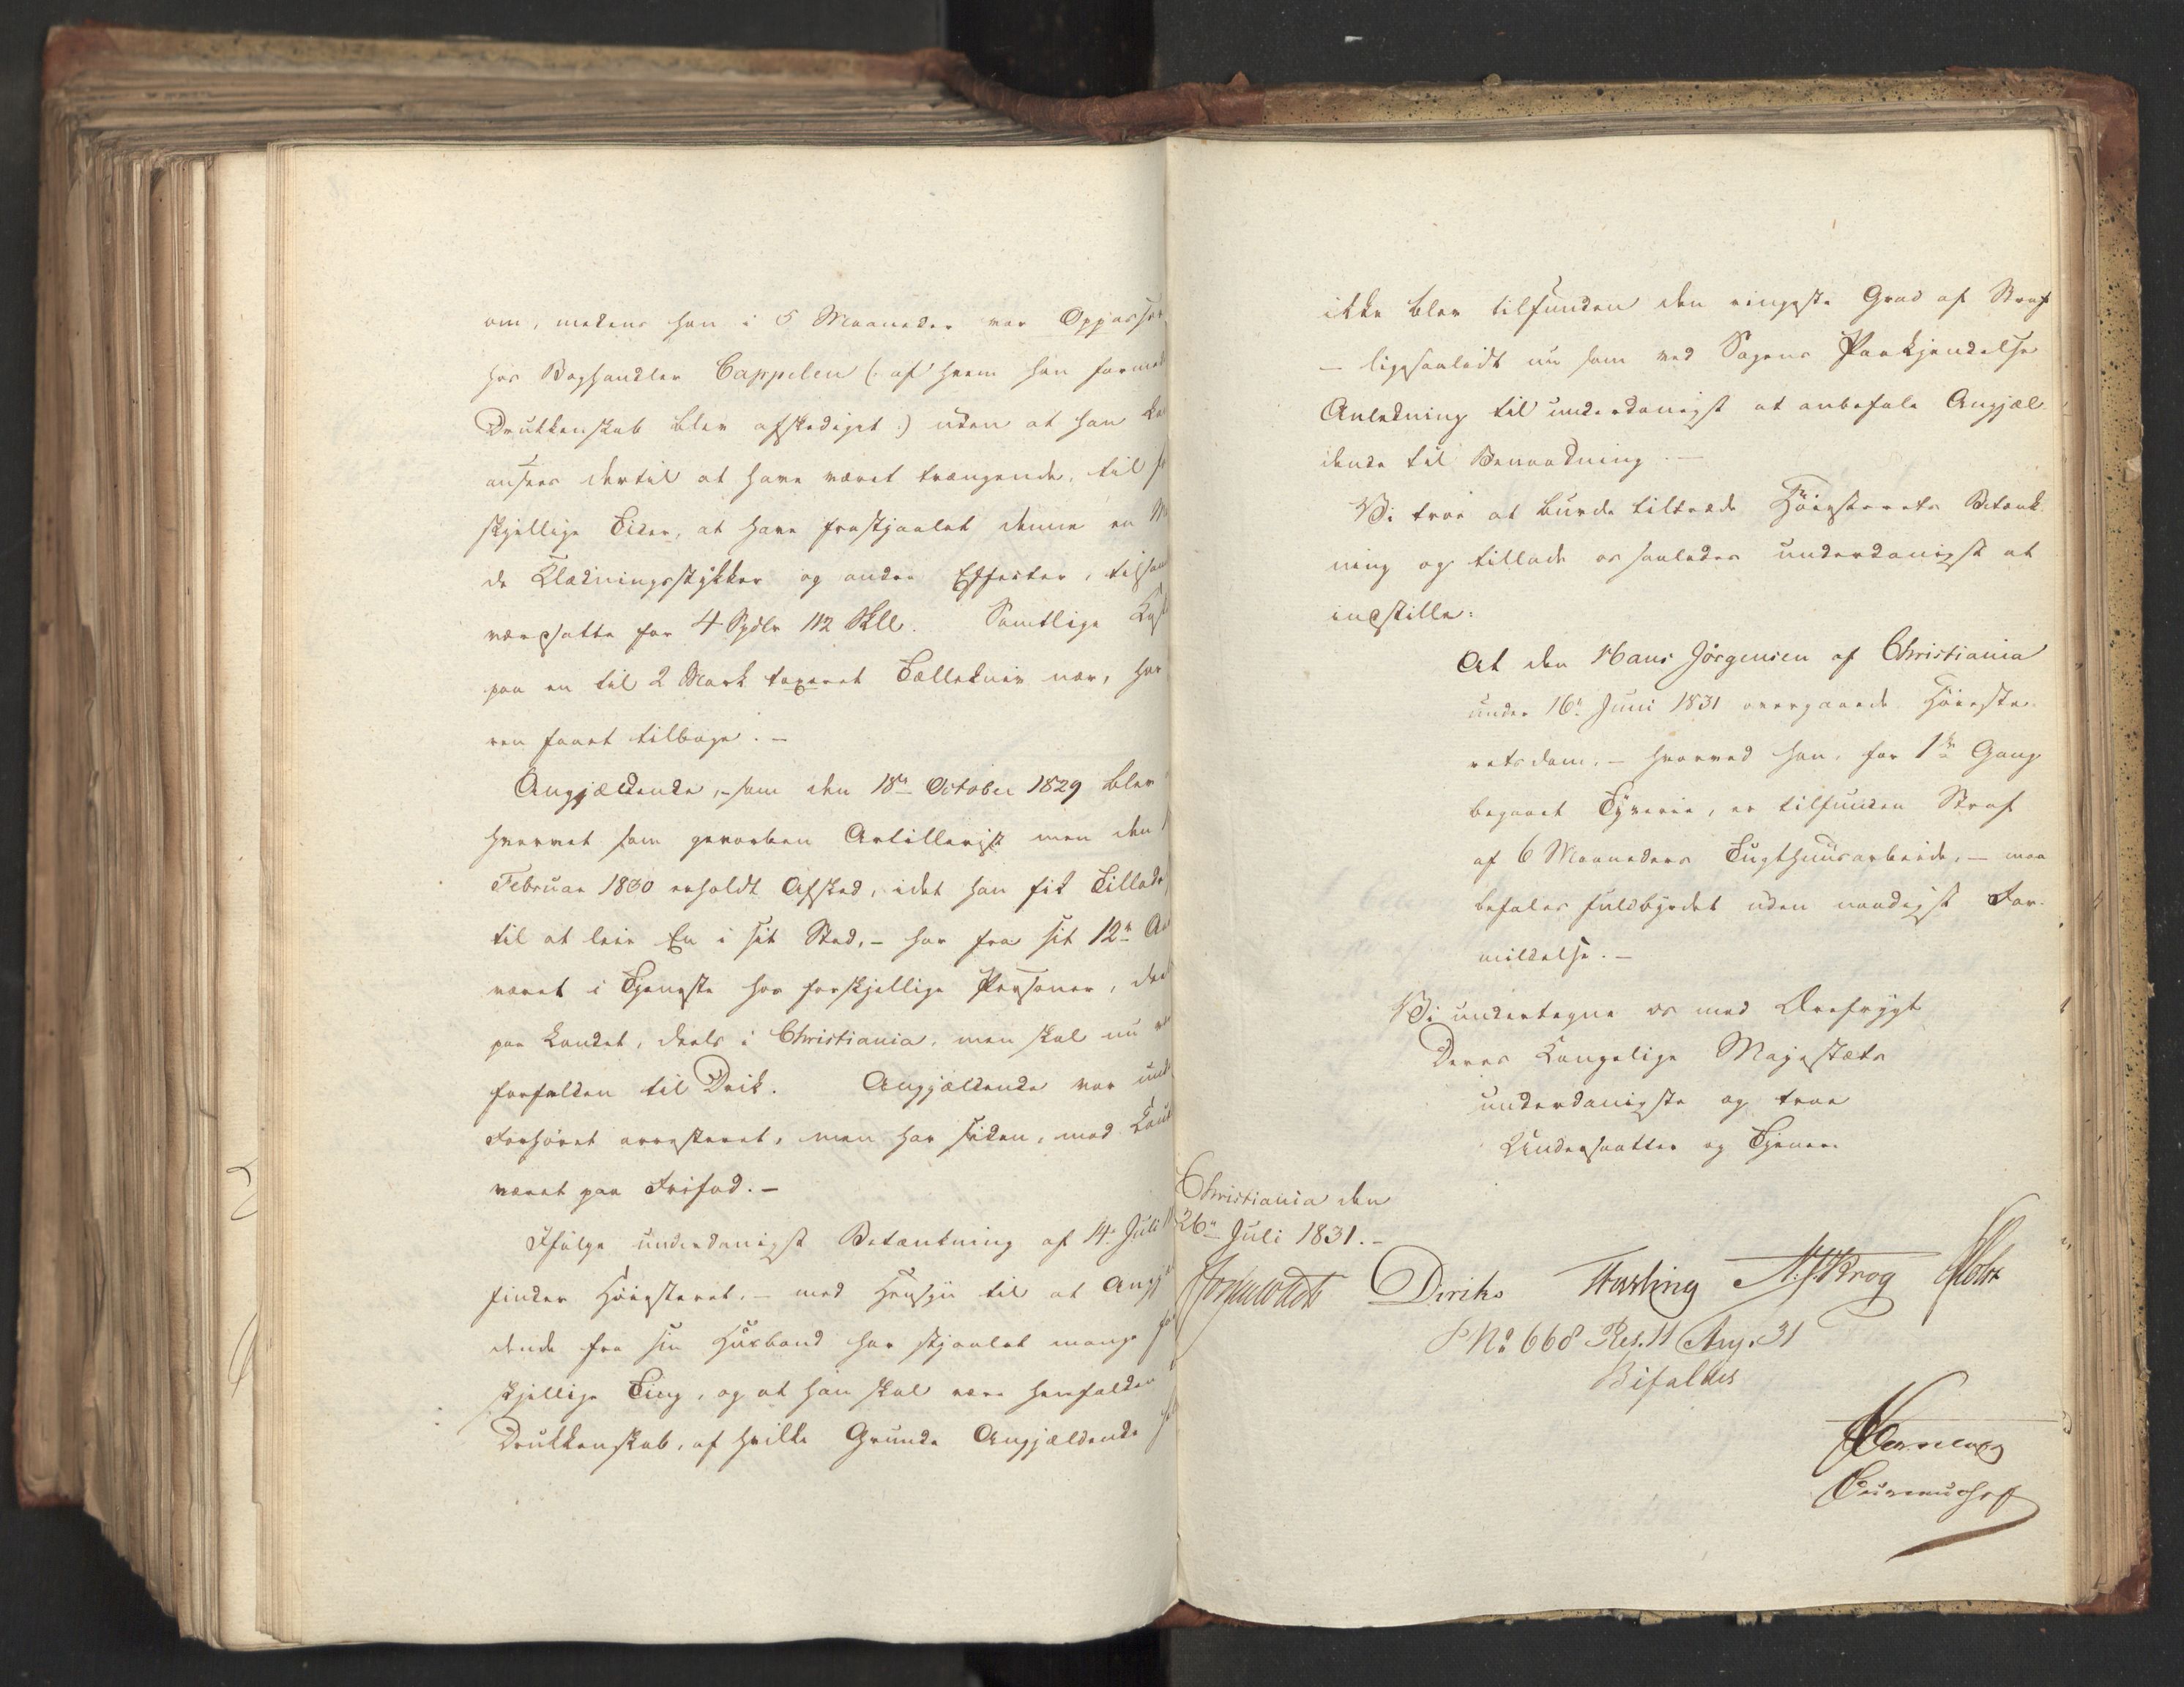 om, medens han i 5 Maaneder var Oppasser
hos Boghandler Cappelen (: af hvem han formed
Drukkenskab blev afskediget :) uden at han
ansees dertil at have været trængende, til
skjellige Tider, at have frastjaalet denne en
de Klædningsstykker og andre Effecter, tilsam
værdsatte for 4 Spdlr 112 Skll. Samtlige
paa en til 2 Mark taxeret Bællekniv nær, har
ren faaet tilbage. –
Angjældende, – som den 18de October 1829 blev
hvervet som geworben Artillerist men den
Februar 1830 erholdt Afsked, idet han fik Tillade
til at leie En i sit Sted, – har fra sit 12te
været i Tjeneste hos forskjellige Personer, deels
paa Landet, deels i Christiania, men skal nu
forfalden til Drik. Angjældende var under
Forhøret arresteret, men har siden, mod
været paa Frifod. –
Ifølge underdanigst Betænkning af 14de Juli
finder Høiesteret, – med Hensyn til at Angjæl
dende fra sin Husbond har stjaalet mange for
skjellige Ting, og at han skal være henfalden
Drukkenskab, af hvilke Grunde Angjældende
ikke blev tilfunden den ringeste Grad af Straf
– ligesaalidt nu som ved Sagens Paakjendelse
Anledning til underdanigst at anbefale Angjæl-
dende til Benaadning. –
Vi troe at burde tiltræde Høiesterets Betænk-
ning og tillade os saaledes underdanigst at
indstille:
At den Hans Jörgensen af Christiania
under 16de Juni 1831 overgaaede Høieste-
retsdom, – hvorved han, for 1ste Gang
begaaet Tyverie, er tilfunden Straf
af 6 Maaneders Tugthuusarbeide, – maa
befales fuldbyrdet uden naadigst For-
mildelse. –
Vi undertegne os med Ærefrygt
Deres Kongelige Majestæts
underdanigste og troe
Undersaatter og Tjenere
Christiania den
26de Juli 1831. –
Diriks Fasting N. J. Krog Holst
P No 668 Res. 11 Aug. 31
Bifaldes